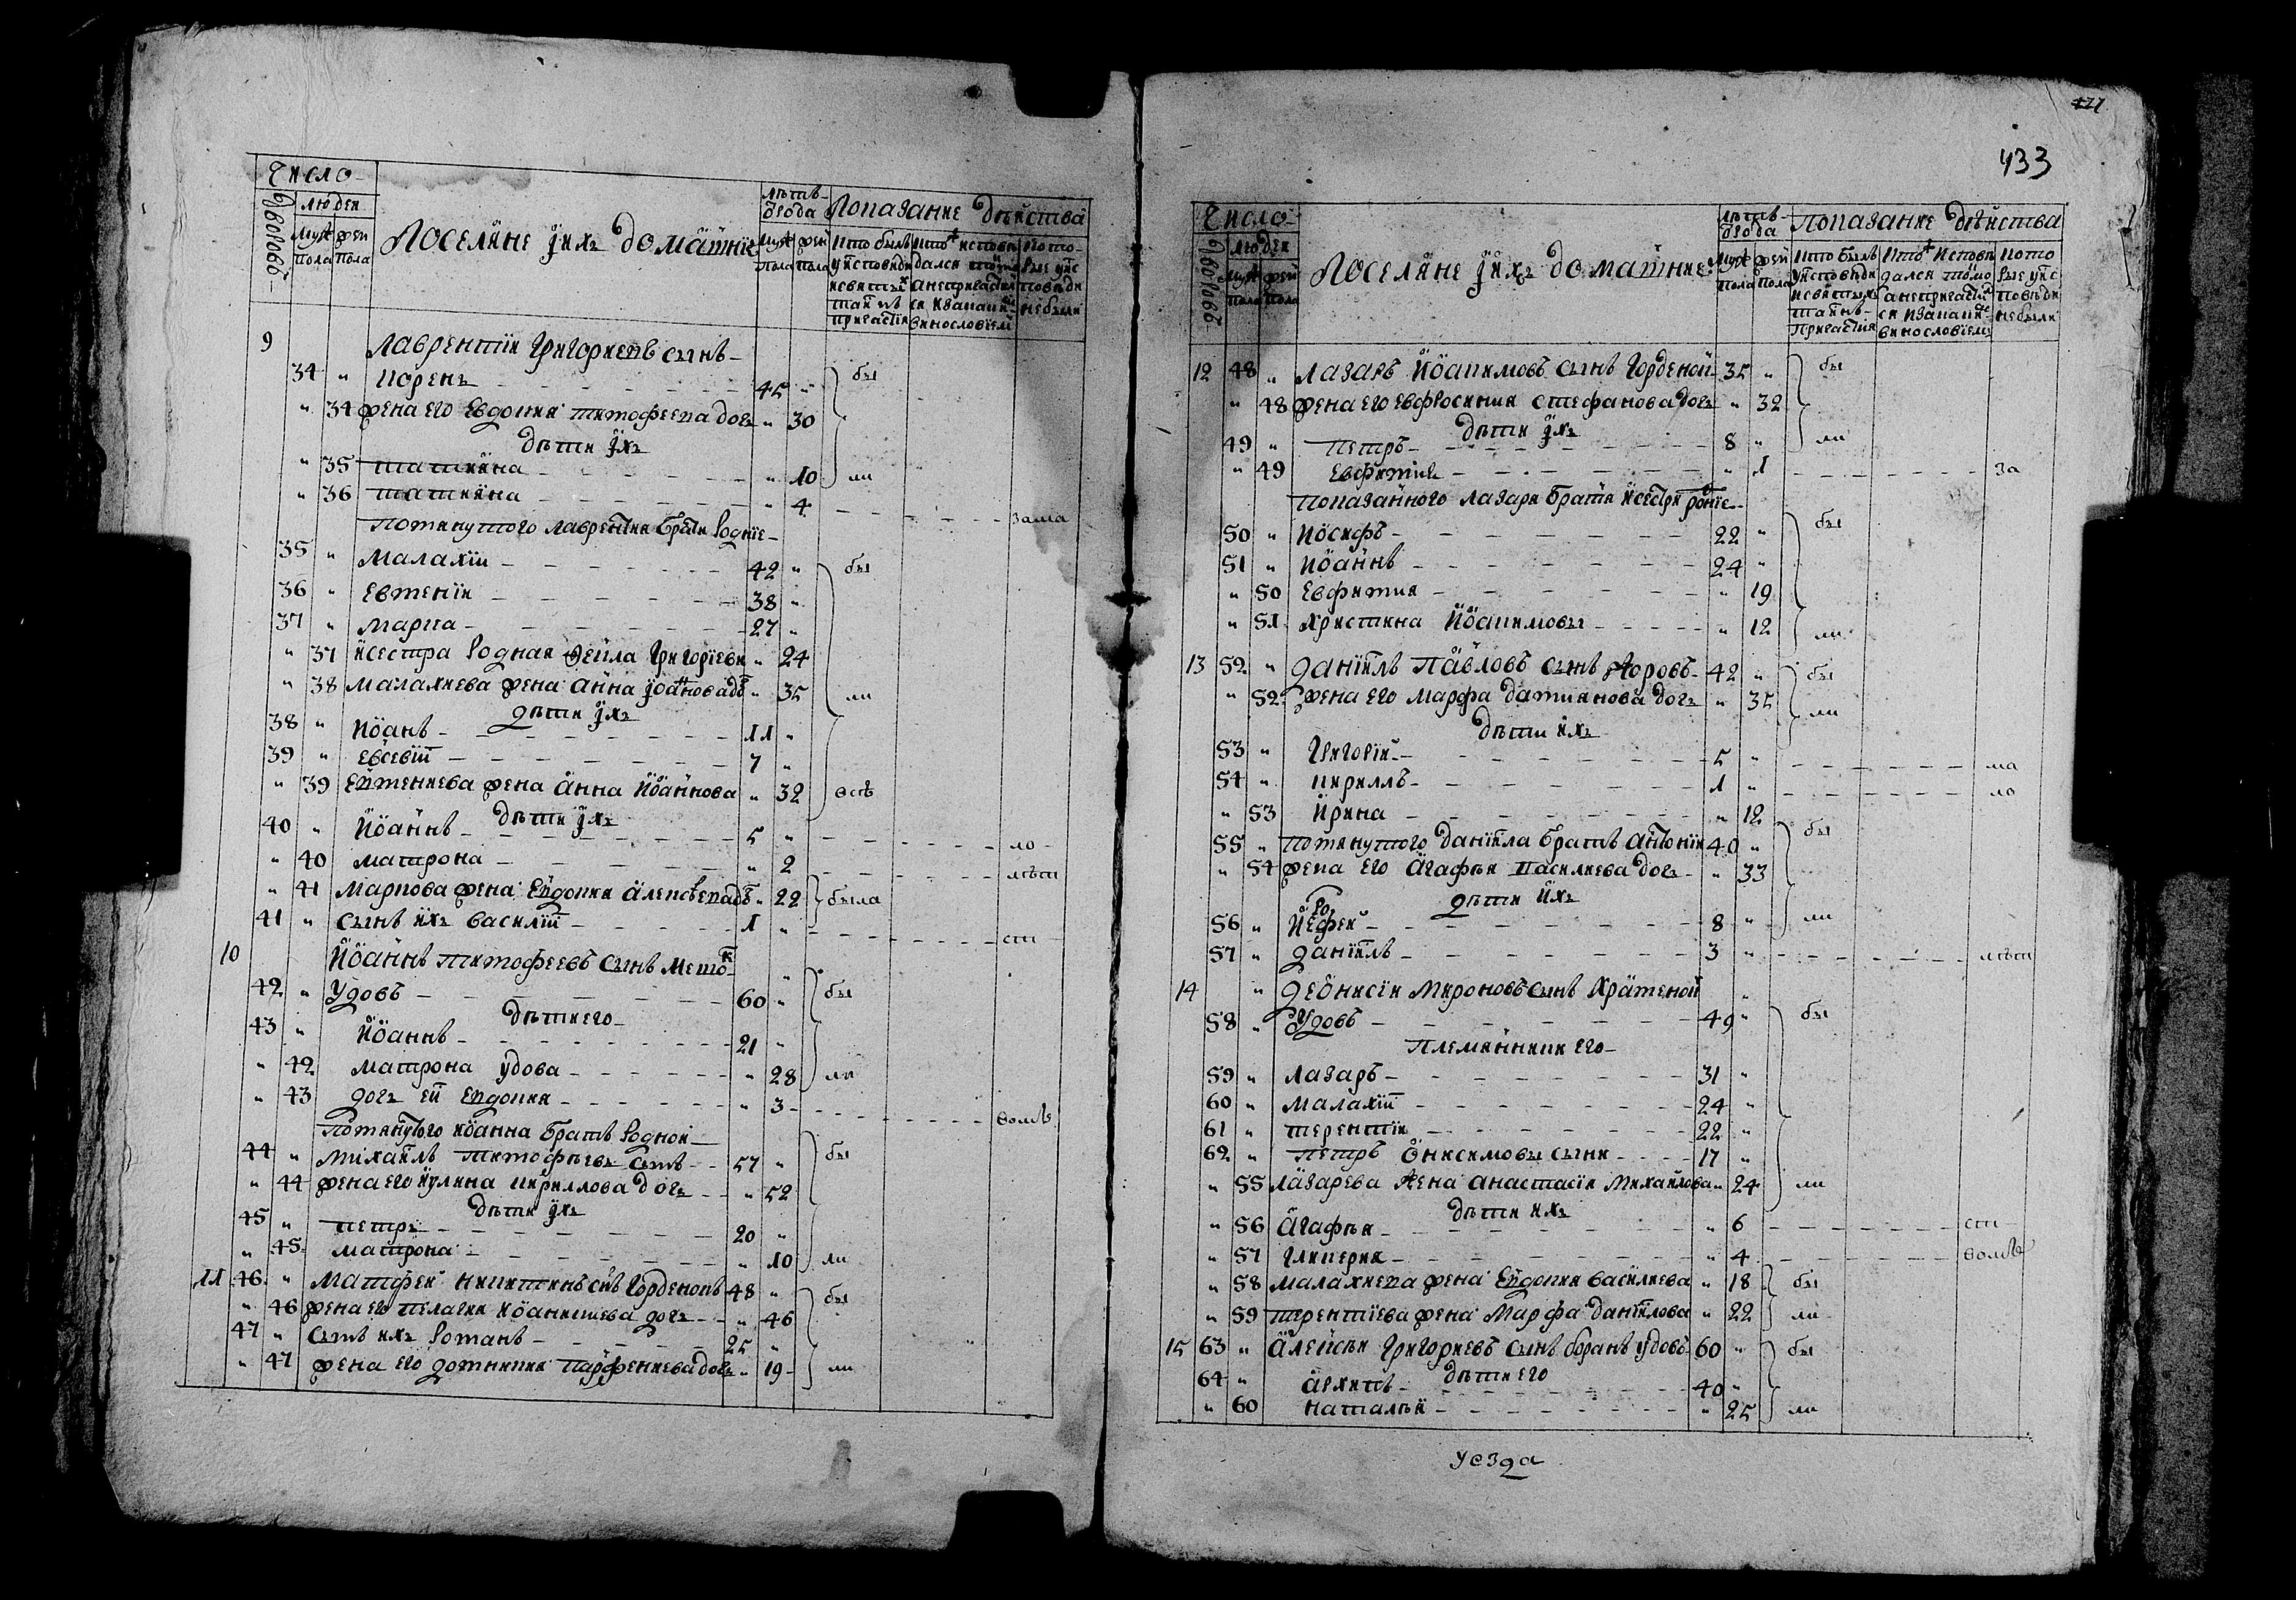 Число
дворовъ
людей
Муж пола
жен пола
Поселяне и ихъ домашние
лѣтъ от рода
Муж пола
жен пола
Показание действа
кто былъ у исповеди и святыхъ таинъ причастия
кто исповедался токмо а не причастился и за каким винословием
кото-рые у исповеди не были
9 Лаврентий Григориевъ сынъ
34 " Корень 45 " бы
" 34 жена его Евдокия Тимофеева дочь " 30
дети их
" 35 Татияна " 10 ли
" 36 Татияна " 4 за ма
Помянутого Лаврентия братия родние
35 " Малахий 42 " бы
36 " Евтений 38 "
37 " Марко 27 "
" 37 и сестра родная Фекла Григориева " 24
" 38 Малахиева жена Анна Иоаннова до " 35 ли
дети их
38 " Иоанъ 11 "
39 " Евсевий 7 "
" 39 Евтениева жена Анна Иоаннова " 32 всѣ
дети их
40 " Иоаннъ 5 " ло
" 40 Матрона " 2 лѣт
" 41 Маркова жена Евдокия Алексѣева до " 22 была
41 " сынъ ихъ Василий 1 " ст
10 Иоаннъ Тимофеевъ сынъ
42 " Удовъ 60 " бы
дети его
43 " Иоаннъ 21 "
" 42 Матрона удова " 28 ли
" 43 дочь ей Евдокия " 3 вомъ
Помянутого Иоанна братъ родной
44 " Михаилъ Тимофеевъ сынъ 57 " бы
" 44 жена его Иулина Кириллова дочь " 52
дети их
45 " Петръ 20 "
" 45 Матрона " 10 ли
11 46 " Матфей Никитинъ снъ Горденокъ 48 " бы
" 46 жена его Пелагия Иоаникиева дочь " 46
47 " сынъ ихъ Романъ 25 "
" 47 жена его Домникия Парфениева дочь " 19 ли
433
Число
дворовъ
людей
Муж пола
жен пола
Поселяне и ихъ домашние
лѣтъ от рода
Муж пола
жен пола
Показание действа
кто былъ у исповеди и святыхъ таинъ причастия
кто исповедался токмо а не причастился и за каким винословием
кото рые у исповеди не были
12 48 " Лазаръ Иоакимовъ сынъ Горденой 35 " бы
" 48 жена его Евфросиния Стефанова дочь " 32
дети их
49 " Петръ 8 " ли
" 49 Евфимия " 1 за
Показанного Лазаря братия и сестри родние
50 " Иосифъ 22 " бы
51 " Иоаннъ 24 "
" 50 Евфимия " 19
" 51 Христина Иоакимовы " 12 ли
13 52 " Даниилъ Павловъ сынъ 42 " бы
" 52 жена его Марфа Дамиянова дочь " 35 ли
дети ихъ
53 " Григорий 5 " ма
54 " Кириллъ 1 " ло
" 53 Ирина " 12
55 " Помянутого Даниила братъ Антоний 40 " бы
" 54 жена его Агафия Василиева дочь " 33
дети ихъ
56 " Иерофей 8 " ли
57 " Даниилъ 3 " лѣт
14 " Деонисий Мироновъ сынъ Храменой "
58 " Удовъ 49 " бы
Племянники его
59 " Лазаръ 31 "
60 " Малахий 24 "
61 " Терентий 22 "
62 " Петръ Онисимовы сыни 17 "
" 55 Лазарева жена Анастасия Михайлова " 24 ли
дети ихъ
" 56 Агафия " 6 ст
" 57 Гликерия " 4 вомъ
" 58 Малахиева жена Евдокия Василиева " 18 бы
" 59 Терентиева жена Марфа Даниилова " 22 ли
15 63 " Алексѣй Григориевъ сынъ Боранъ удовъ 60 " бы
дети его
64 " Архипъ 40 "
" 60 Наталия " 25 ли
уезда